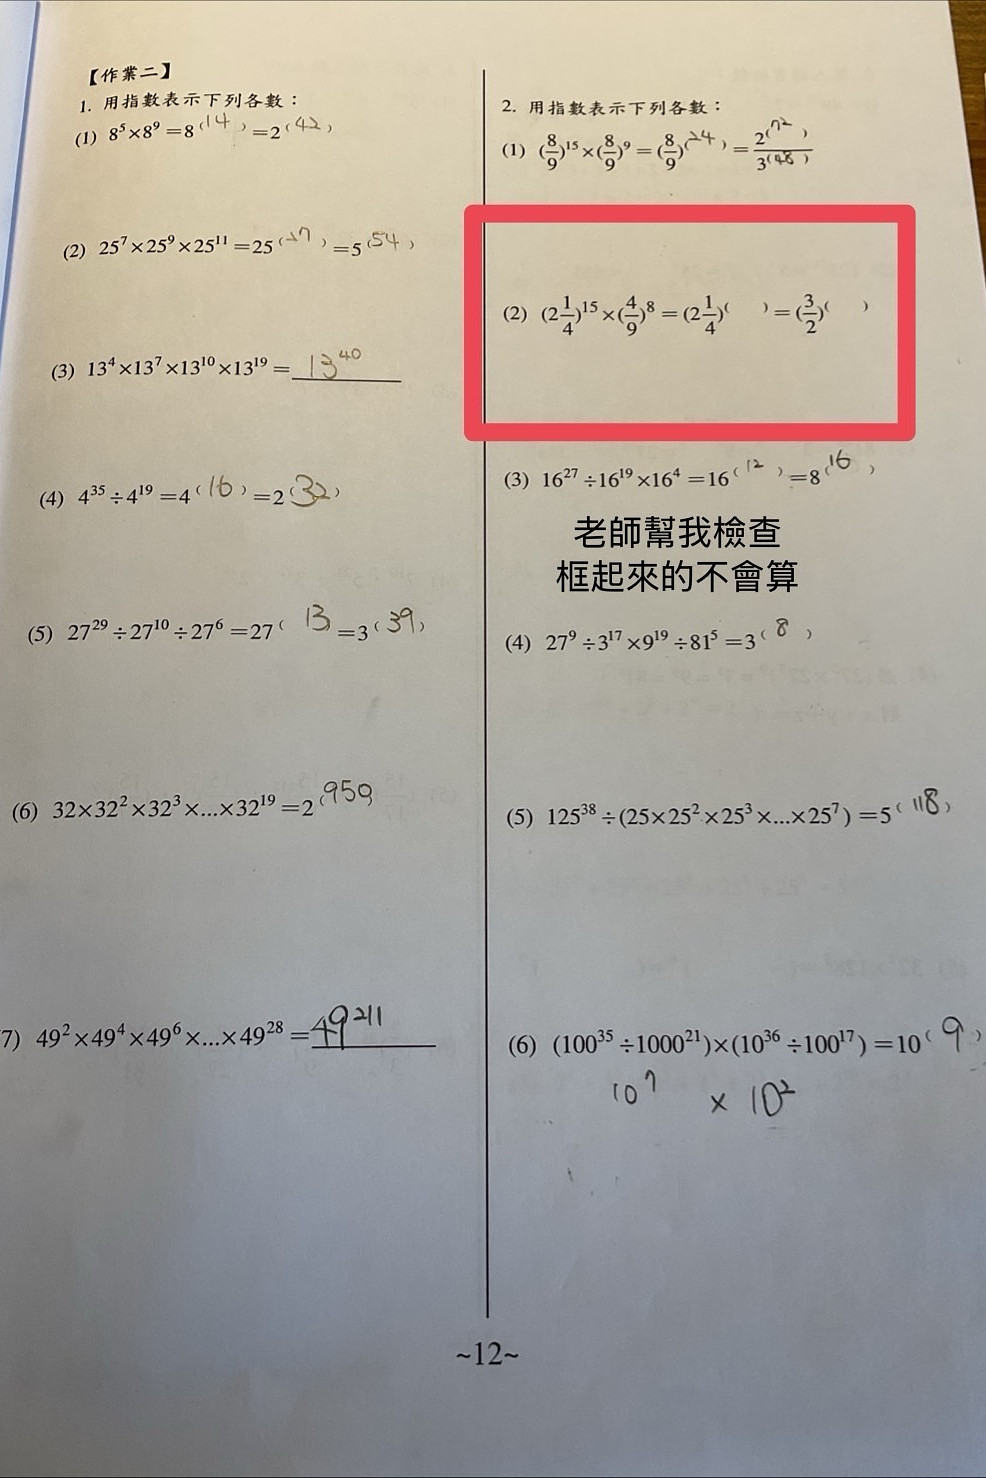 【作業二】
1. 用指數表示下列各數：
(1) 8⁵×8⁹=8⁽¹⁴⁾=2⁽⁴²⁾
(2) 25⁷×25⁹×25¹¹=25⁽²⁷⁾=5⁽⁵⁴⁾
(3) 13⁴×13⁷×13¹⁰×13¹⁹=13⁴⁰
(4) 4³⁵÷4¹⁹=4⁽¹⁶⁾=2⁽³²⁾
(5) 27²⁹÷27¹⁰÷27⁶=27⁽¹³⁾=3⁽³⁹⁾
(6) 32×32²×32³×...×32¹⁹=2⁽⁹⁵⁰⁾
7) 49²×49⁴×49⁶×...×49²⁸=49²¹¹
2. 用指數表示下列各數：
(1) (8/9)¹⁵×(8/9)⁹=(8/9)⁽²⁴⁾=2⁽⁷²⁾/3⁽⁴⁸⁾
(2) (2 1/4)¹⁵×(4/9)⁸=(2 1/4)⁽ ⁾=(3/2)⁽ ⁾
(3) 16²⁷÷16¹⁹×16⁴=16⁽¹²⁾=8⁽¹⁶⁾
老師幫我檢查
框起來的不會算
(4) 27⁹÷3¹⁷×9¹⁹÷81⁵=3⁽⁸⁾
(5) 125³⁸÷(25×25²×25³×...×25⁷)=5⁽¹¹⁸⁾
(6) (100³⁵÷1000²¹)×(10³⁶÷100¹⁷)=10⁽⁹⁾
10⁷ × 10²
~12~